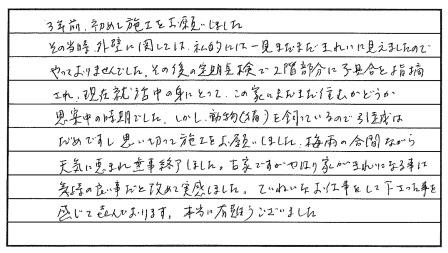 3年前、初めて施工をお願いしました
その当時、外壁に関しては、私的には一見まだまだきれいに見えましたので
やっておりませんでした。その後の定期点検で2階部分に不具合を指摘
され、現在就活中の身にとって、この家にまだまだ住むかどうか
思案中の時期でした。しかし、動物(猫)を飼っているので引越は
だめですし思い切って施工をお願いしました。梅雨の合間ながら
天気に恵まれ無事終了しました。古家ですがやはり家がきれいになる事は
気持の良い事だと改めて実感しました。ていねいなお仕事をして下さった事を
感じて喜んでおります。本当に有難うございました